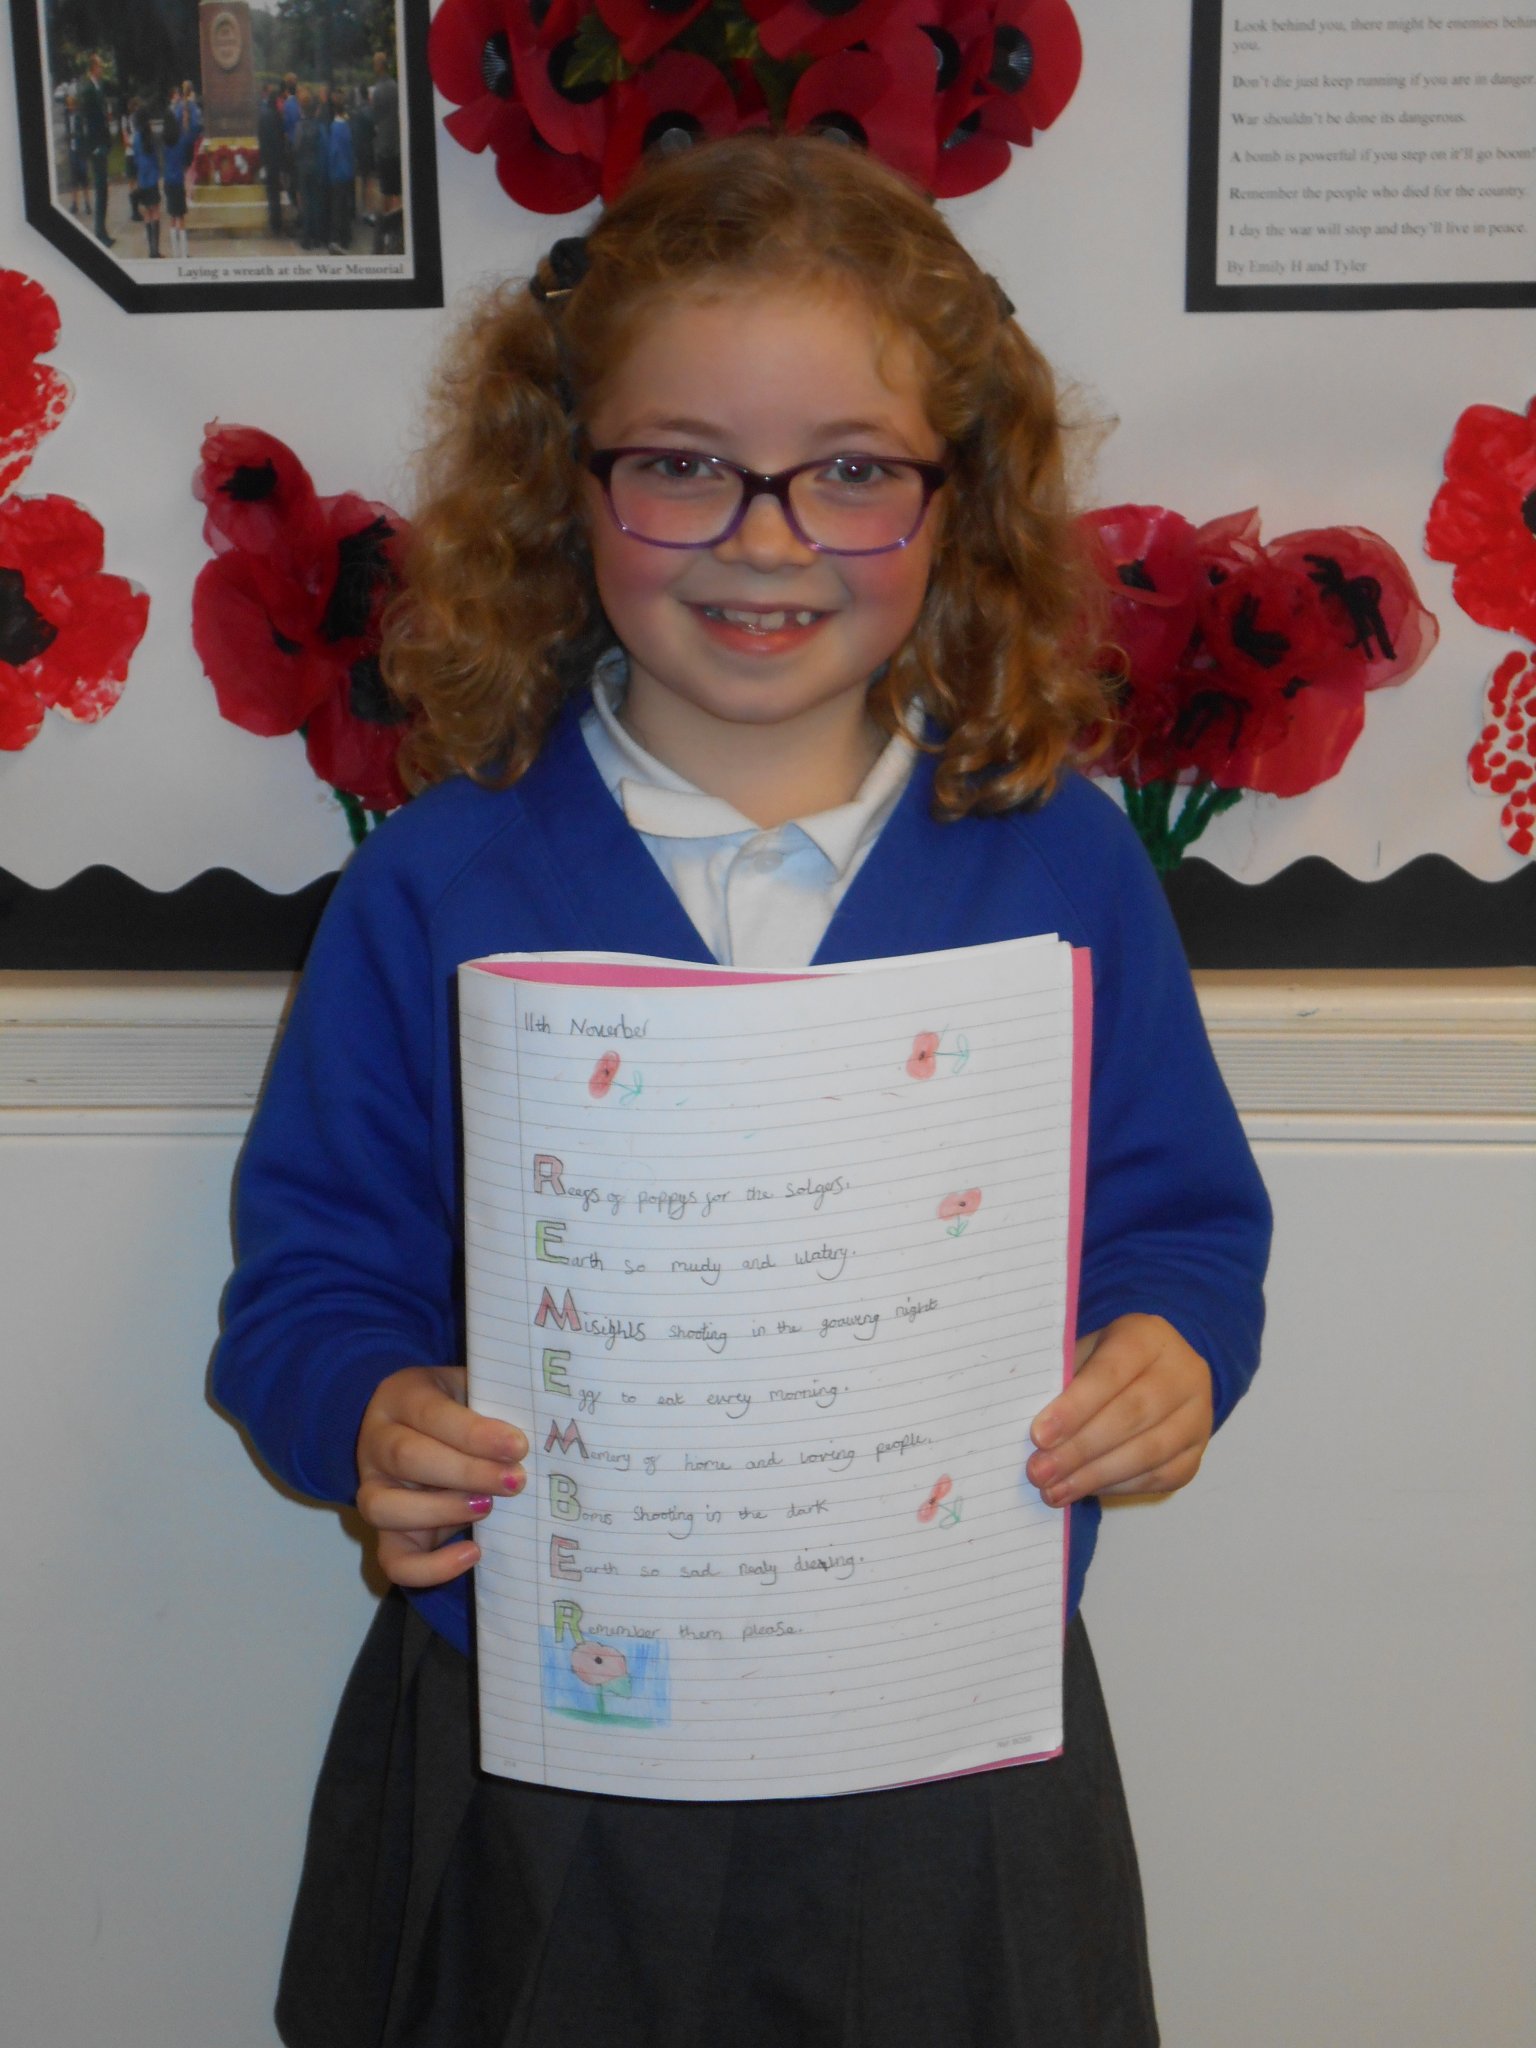 Laying a wreath at the War Memorial
Look behind you, there might be enemies behin
you.
Don't die just keep running if you are in danger.
War shouldn't be done its dangerous.
A bomb is powerful if you step on it'll go boom!
Remember the people who died for the country.
1 day the war will stop and they'll live in peace.
By Emily H and Tyler
11th November
Reegs of poppys for the Solgers.
Earth so mudy and watery.
Misighls shooting in the goawing night
Egg to eat evrey morning.
Memery of home and loving people.
Boms shooting in the dark
Earth so sad realy dieing.
Remember them please.